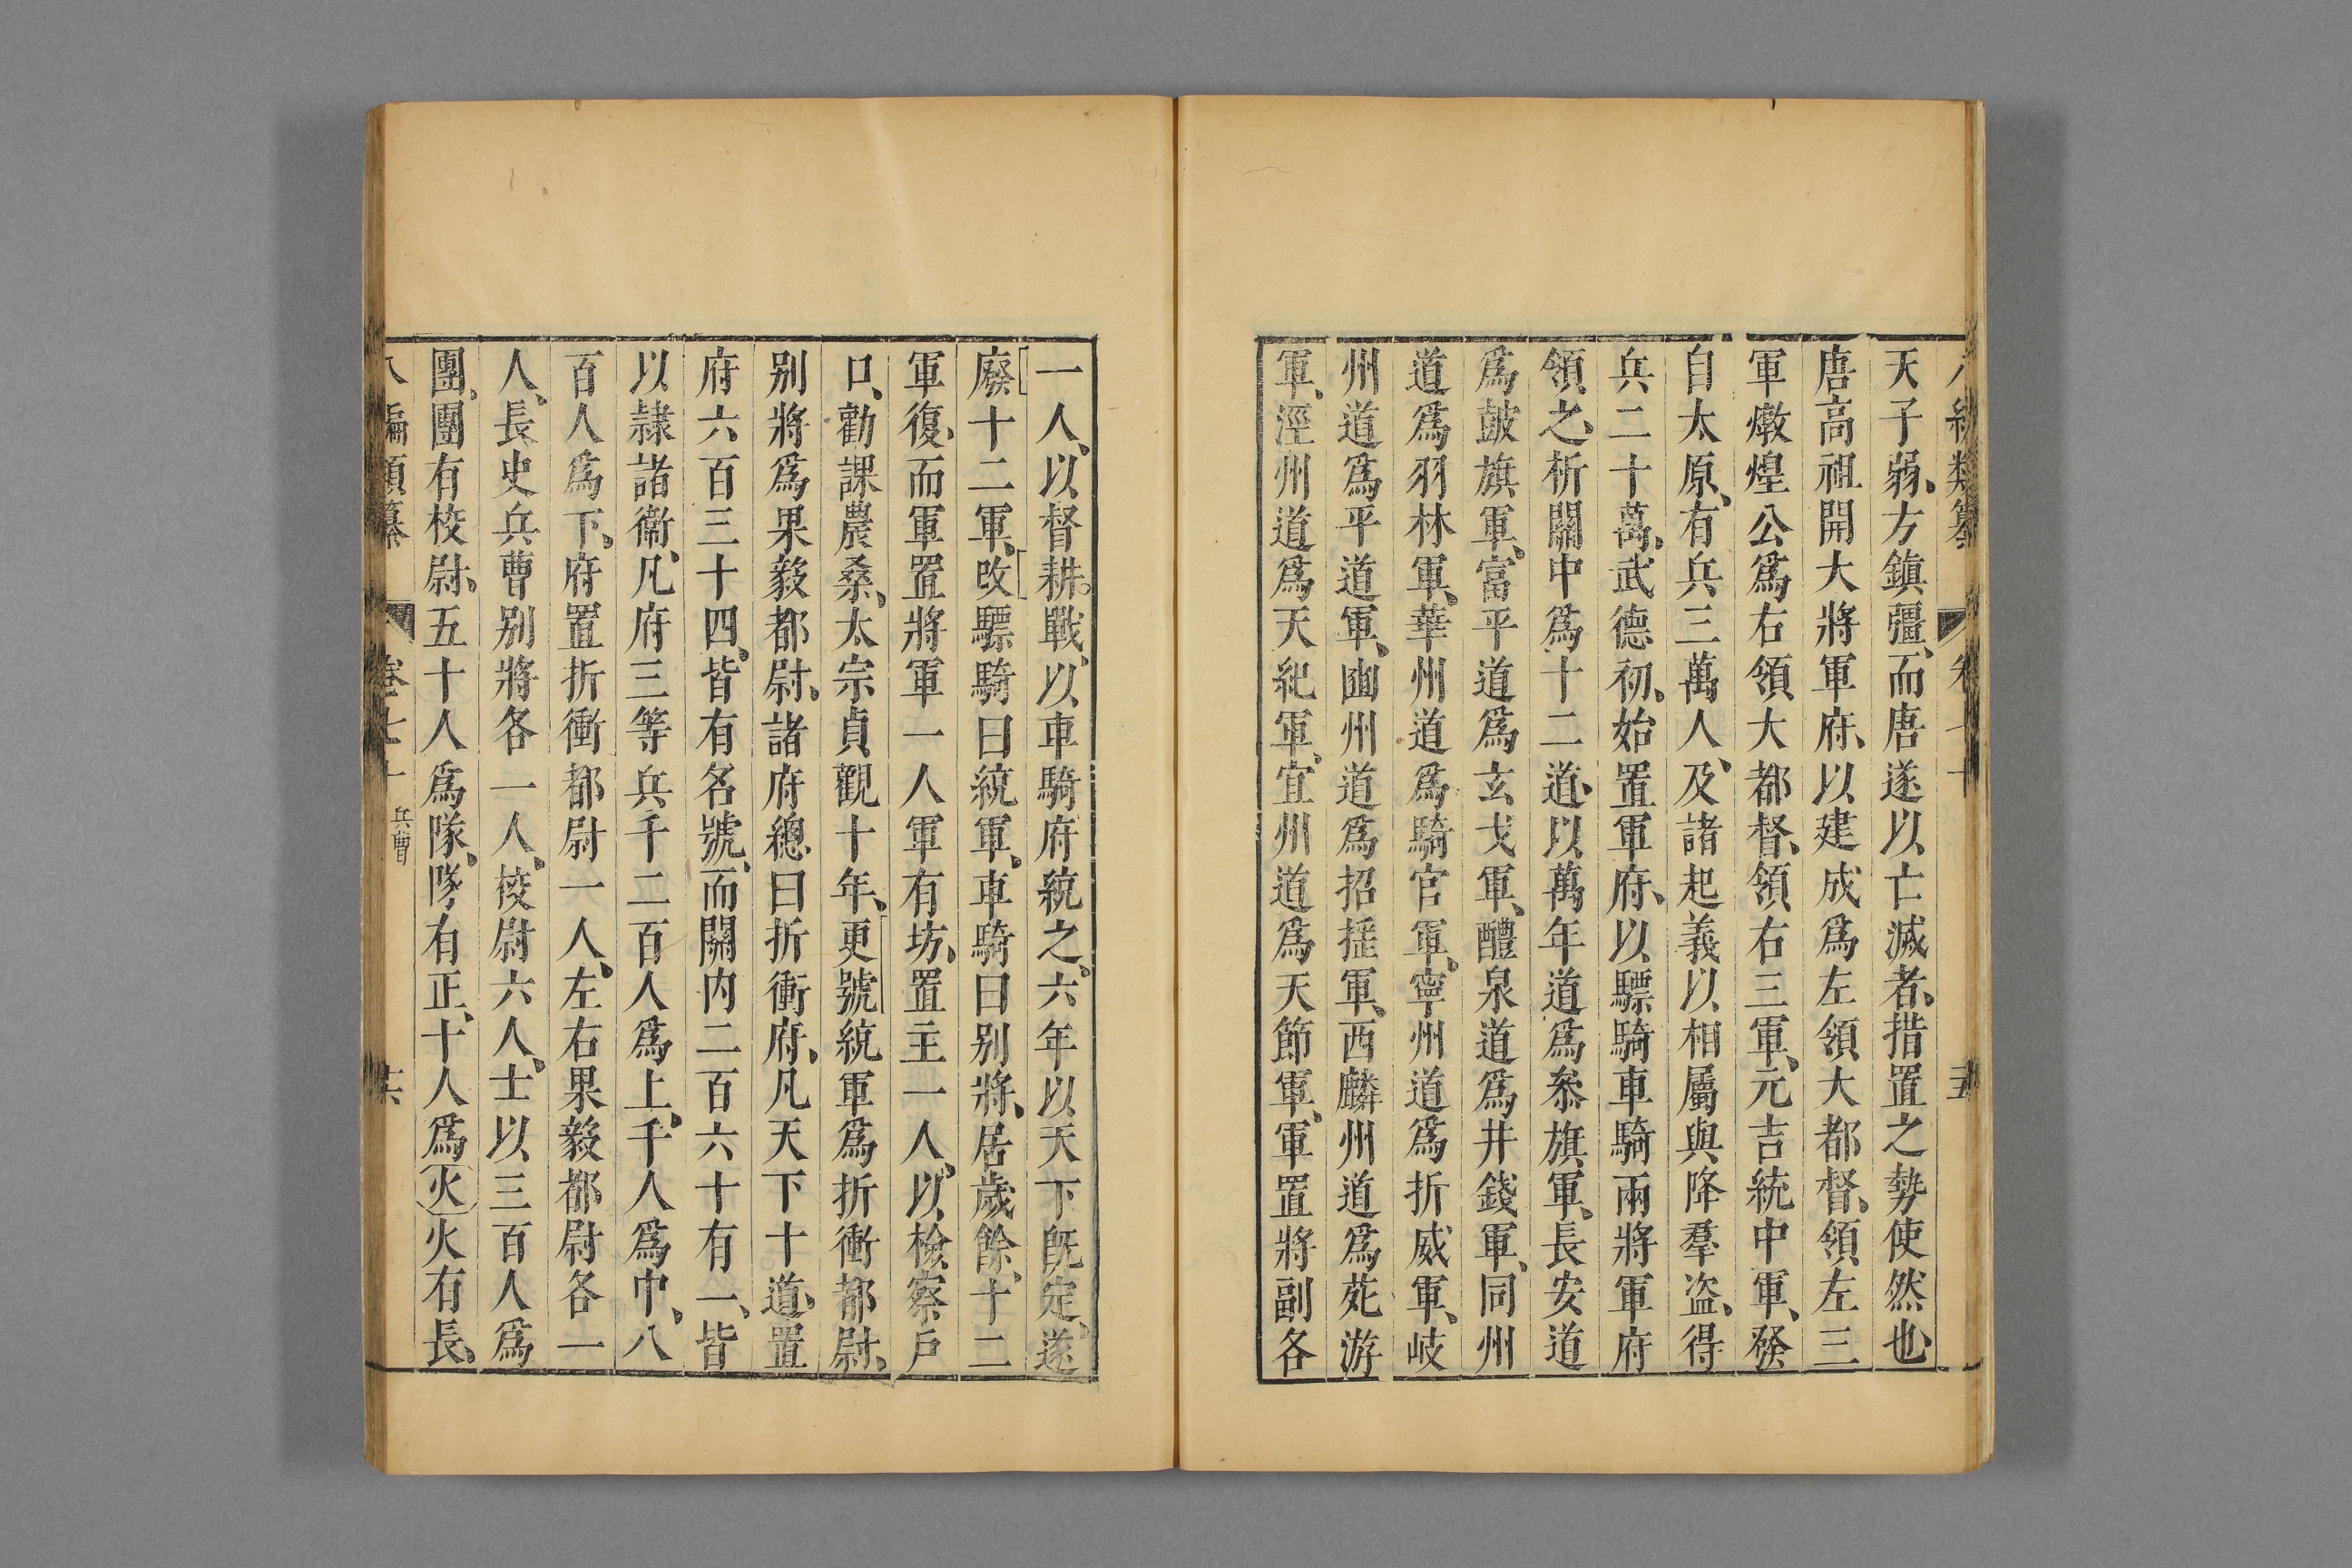 天子弱、方鎮彊、而唐遂以亡滅者、措置之勢使然也、
唐高祖開大將軍府、以建成爲左領大都督、領左三
軍燉煌公爲右領大都督、領右三軍、元吉統中軍、發
自太原、有兵三萬人、及諸起義以相屬與降羣盜、得
兵二十萬、武德初、始置軍府、以驃騎車騎兩將軍府
領之、析關中爲十二道、以萬年道爲參旗軍、長安道
爲鼓旗軍、富平道爲玄戈軍、醴泉道爲井鉞軍、同州
道爲羽林軍、華州道爲騎官軍、寧州道爲折威軍、岐
州道爲平道軍、豳州道爲招搖軍、西麟州道爲苑游
軍、涇州道爲天紀軍、宜州道爲天節軍、軍置將副各
一人、以督耕戰、以車騎府統之、六年以天下既定、遂
廢十二軍、改驃騎曰統軍、車騎曰别將、居歲餘、十二
軍復、而軍置將軍一人軍有坊、置主一人、以檢察戶
口、勸課農桑、太宗貞觀十年、更號統軍爲折衝都尉、
别將爲果毅都尉、諸府總曰折衝府、凡天下十道、置
府六百三十四、皆有名號、而關内二百六十有一、皆
以隷諸衞、凡府三等兵千二百人爲上、千人爲中、八
百人爲下、府置折衝都尉一人、左右果毅都尉各一
人、長史兵曹别將各一人、校尉六人、士以三百人爲
團、團有校尉、五十人爲隊、隊有正、十人爲火火有長、
八編類纂 卷七十 兵曹 十六